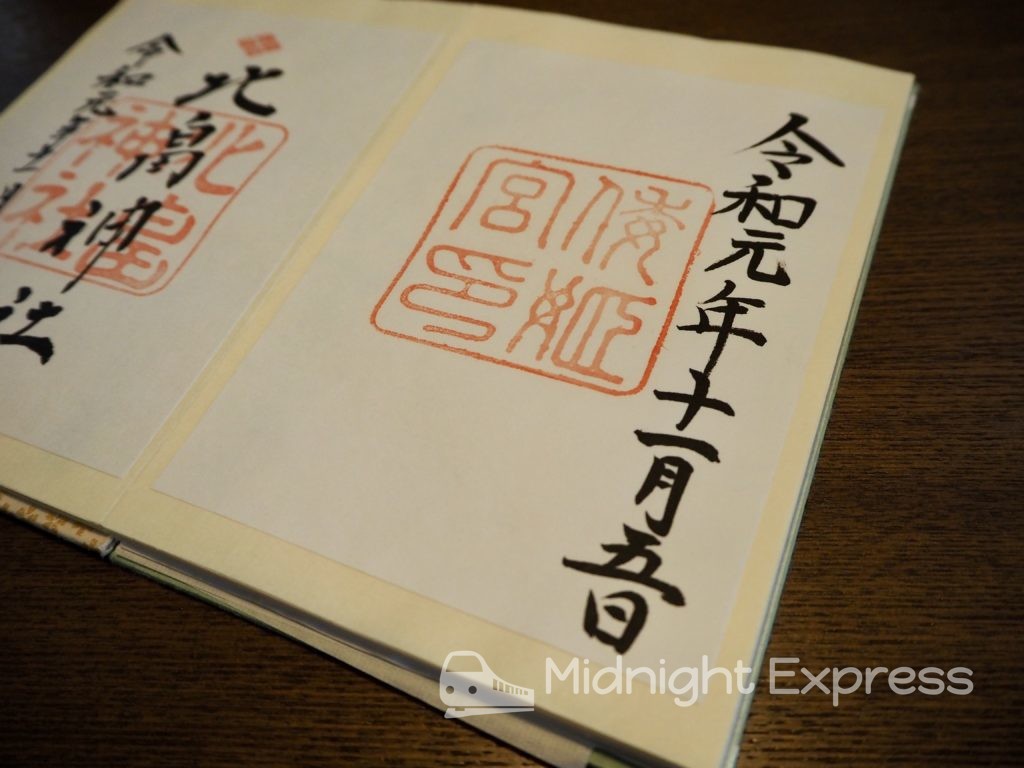 令和元年十一月五日
倭姫
宮印
北畠神社
北畠
神社
令和元年十一月
Midnight Express